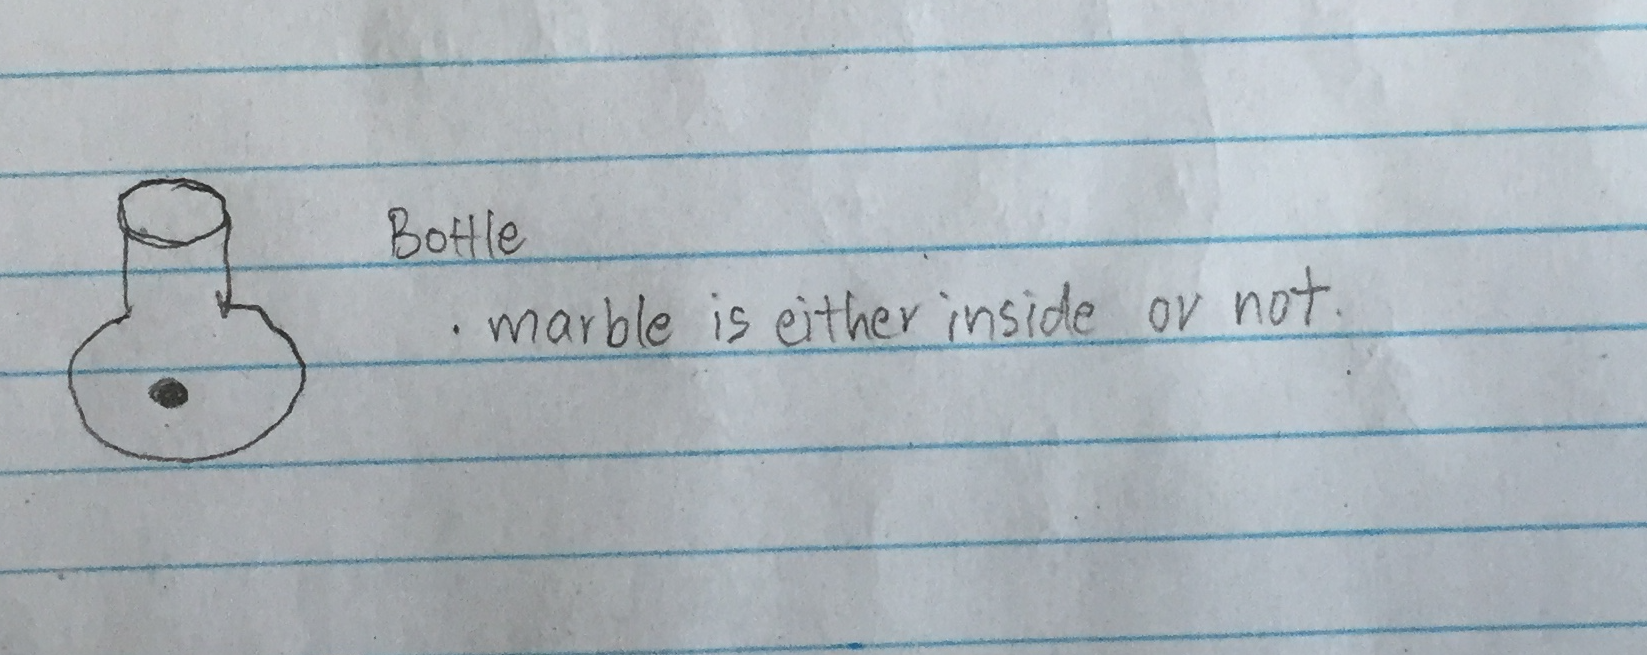 Bottle
· marble is either inside or not.